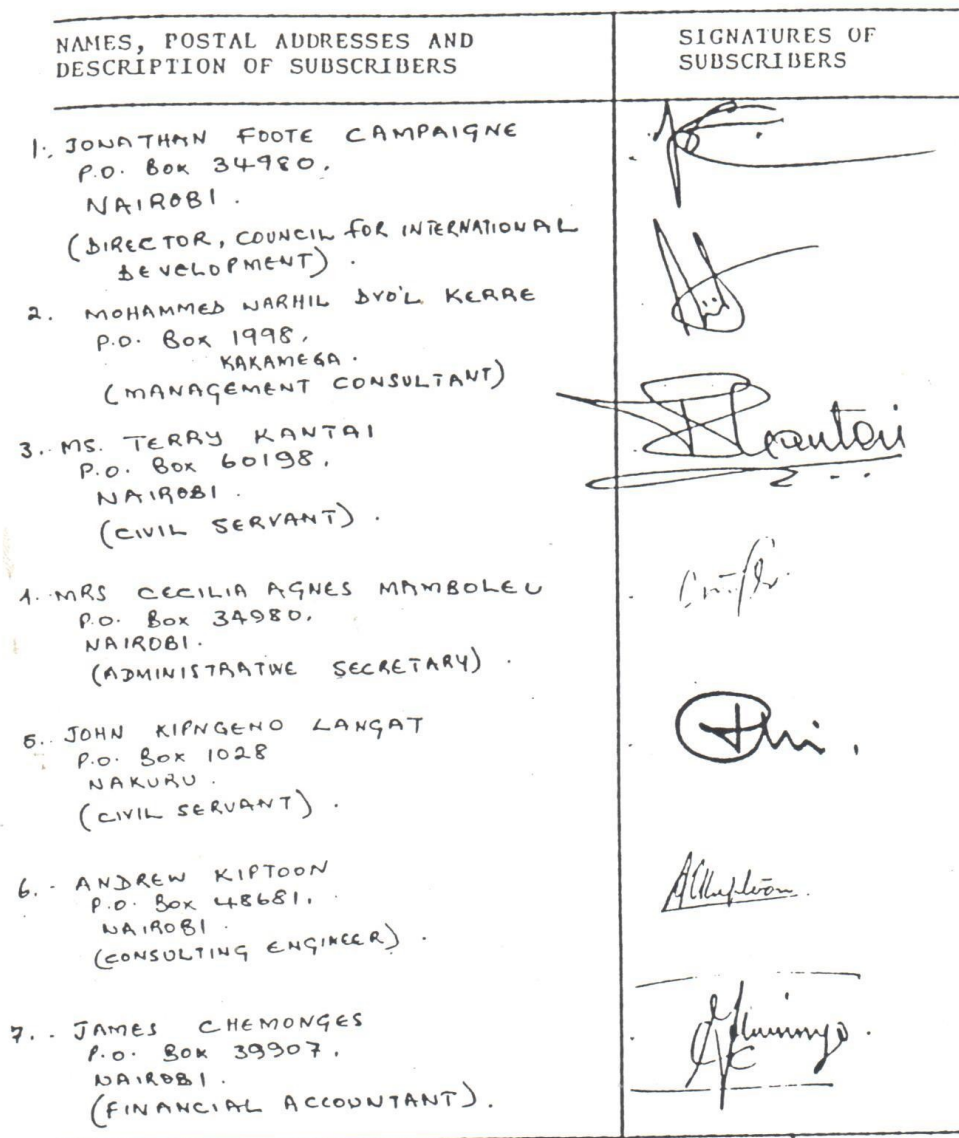 NAMES, POSTAL ADDRESSES AND
DESCRIPTION OF SUBSCRIBERS
SIGNATURES OF
SUBSCRIBERS
1. JONATHAN FOOTE CAMPAIGNE
P.O. Box 34980,
NAIROBI.
(DIRECTOR, COUNCIL FOR INTERNATIONAL
DEVELOPMENT).
2. MOHAMMED NARHIL DVO'L KERRE
P.O. Box 1998,
KAKAMEGA.
(MANAGEMENT CONSULTANT)
3. MS. TERRY KANTAI
P.O. Box 60198,
NAIROBI.
(CIVIL SERVANT).
Kantai
4. MRS CECILIA AGNES MAMBOLEU
P.O. Box 34980,
NAIROBI.
(ADMINISTRATIVE SECRETARY).
5. JOHN KIPNGENO LANGAT
P.O. Box 1028
NAKURU.
(CIVIL SERVANT).
6. ANDREW KIPTOON
P.O. Box 48681,
NAIROBI.
(CONSULTING ENGINEER).
7. JAMES CHEMONGES
P.O. Box 39907,
NAIROBI.
(FINANCIAL ACCOUNTANT).